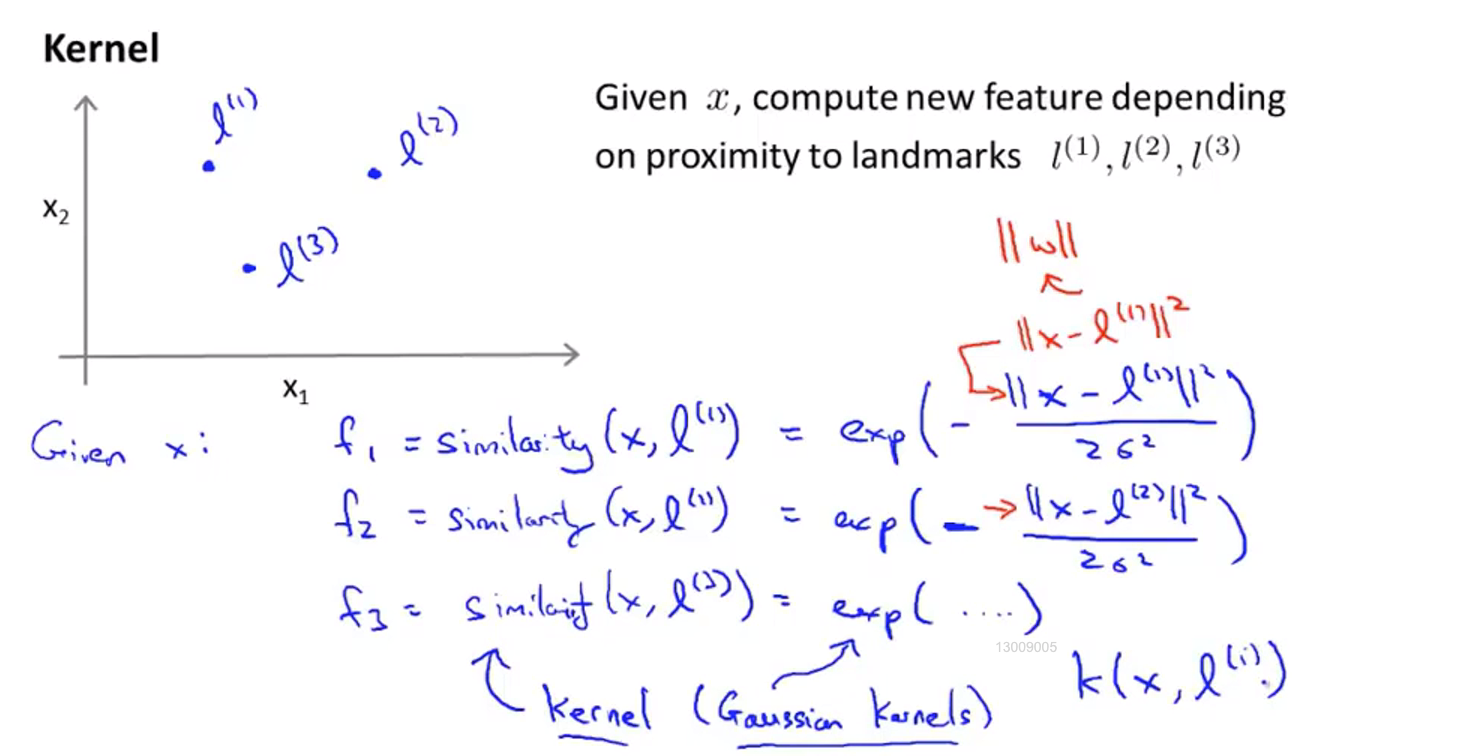 Kernel
l^(1)
l^(2)
x₂
l^(3)
x₁
Given x, compute new feature depending
on proximity to landmarks l^(1), l^(2), l^(3)
||w||
||x - l^(1)||²
Given x: f₁ = similarity (x, l^(1)) = exp(- ||x - l^(1)||² / 2σ²)
f₂ = similarity (x, l^(1)) = exp(- ||x - l^(2)||² / 2σ²)
f₃ = similarity (x, l^(3)) = exp( ....)
13009005
kernel (Gaussian kernels)
k(x, l^(i))